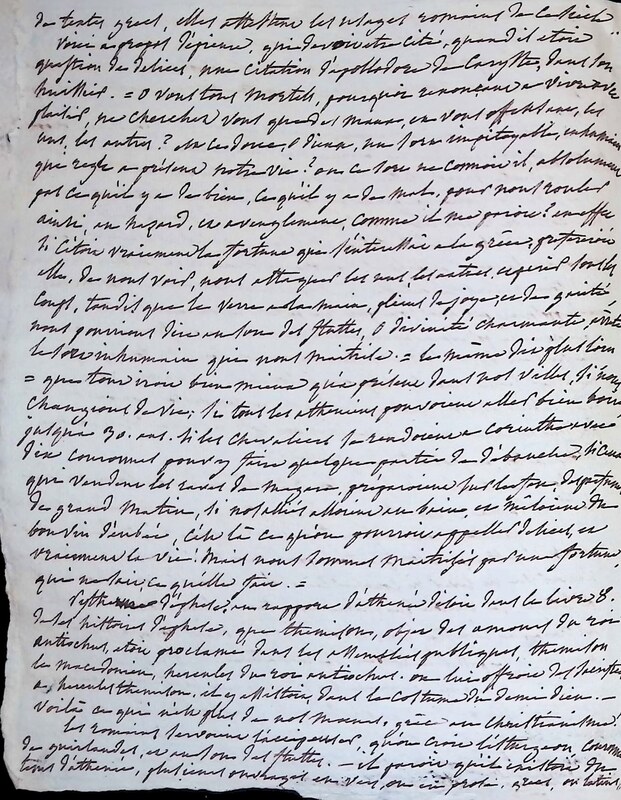 de textes grecs, elles attestent les usages romains de ce siècle.
Voici à propos d'épicure, qui devroit etre cité, quand il etoit
question de delices, une citation d'apollodore de Caryste, dans son
= o vous tous mortels, pourquoi renonçant a vivre avec
plaisir, ne cherchez vous que des maux, en vous offensant, les
uns, les autres? est ce donc, o dieux, un sort impitoyable, inhumain
que regle a présent notre vie? ou ce sort ne connoit il, absolument
pas ce qu'il y a de bien, ce qu'il y a de mal, pour nous rouler
ainsi, au hazard, en aveuglement, comme il me paroit? en effet
si c'étoit vraiment la fortune qui s'interessât a la grèce, prefereroit
elle, de nous voir, nous attaquer les uns, les autres, et périr sous les
coups, tandis que le verre a la main, pleins de joye, et de gaieté
nous pourrions dire au son des fluttes, o divinité charmante, arrete
le sort inhumain qui nous maitrise. = le même dit plus loin
= que tout iroit bien mieux qu'a présent dans nos villes, si nous
changions de vie; si tous les atheniens pouvoient aller bien boire
jusqu'à 30. ans. si les chevaliers se rendoient a corinthe avec
dix couronnes pour y faire quelque partie de débauche, si ceux
qui vendent les raves de megare, préparoient
de grand matin, si nos alliés alloient au bain, et mêloient du
bon vin d'eubée, c'est là ce qu'on pourroit appeller delices, et
vraiment la vie! mais nous sommes maitrisés par une fortune
qui ne sait, ce qu'elle fait. =
d'ephese, au rapport d'athenée disoit dans le livre 8.
de ses histoires d'ephese, que themisons, objet des amours du roi
antiochus, etoit proclamé dans les assemblées publiques, themison
le macedonien, hercules du roi antiochus. on lui offroit des sacrifices
a hercules themison. il y assistoit, dans le costume du demi dieu. —
voilà ce qui n'est plus de nos moeurs, grâce au christianisme!
les romains servoient l'accipenser, qu'on croit l'esturgeon, couronné
de guirlandes, et au son des fluttes. — il paroit qu'il existoit du
tems d'athenée, plusieurs ouvrages en vers, ou en prose, grecs, ou latins,